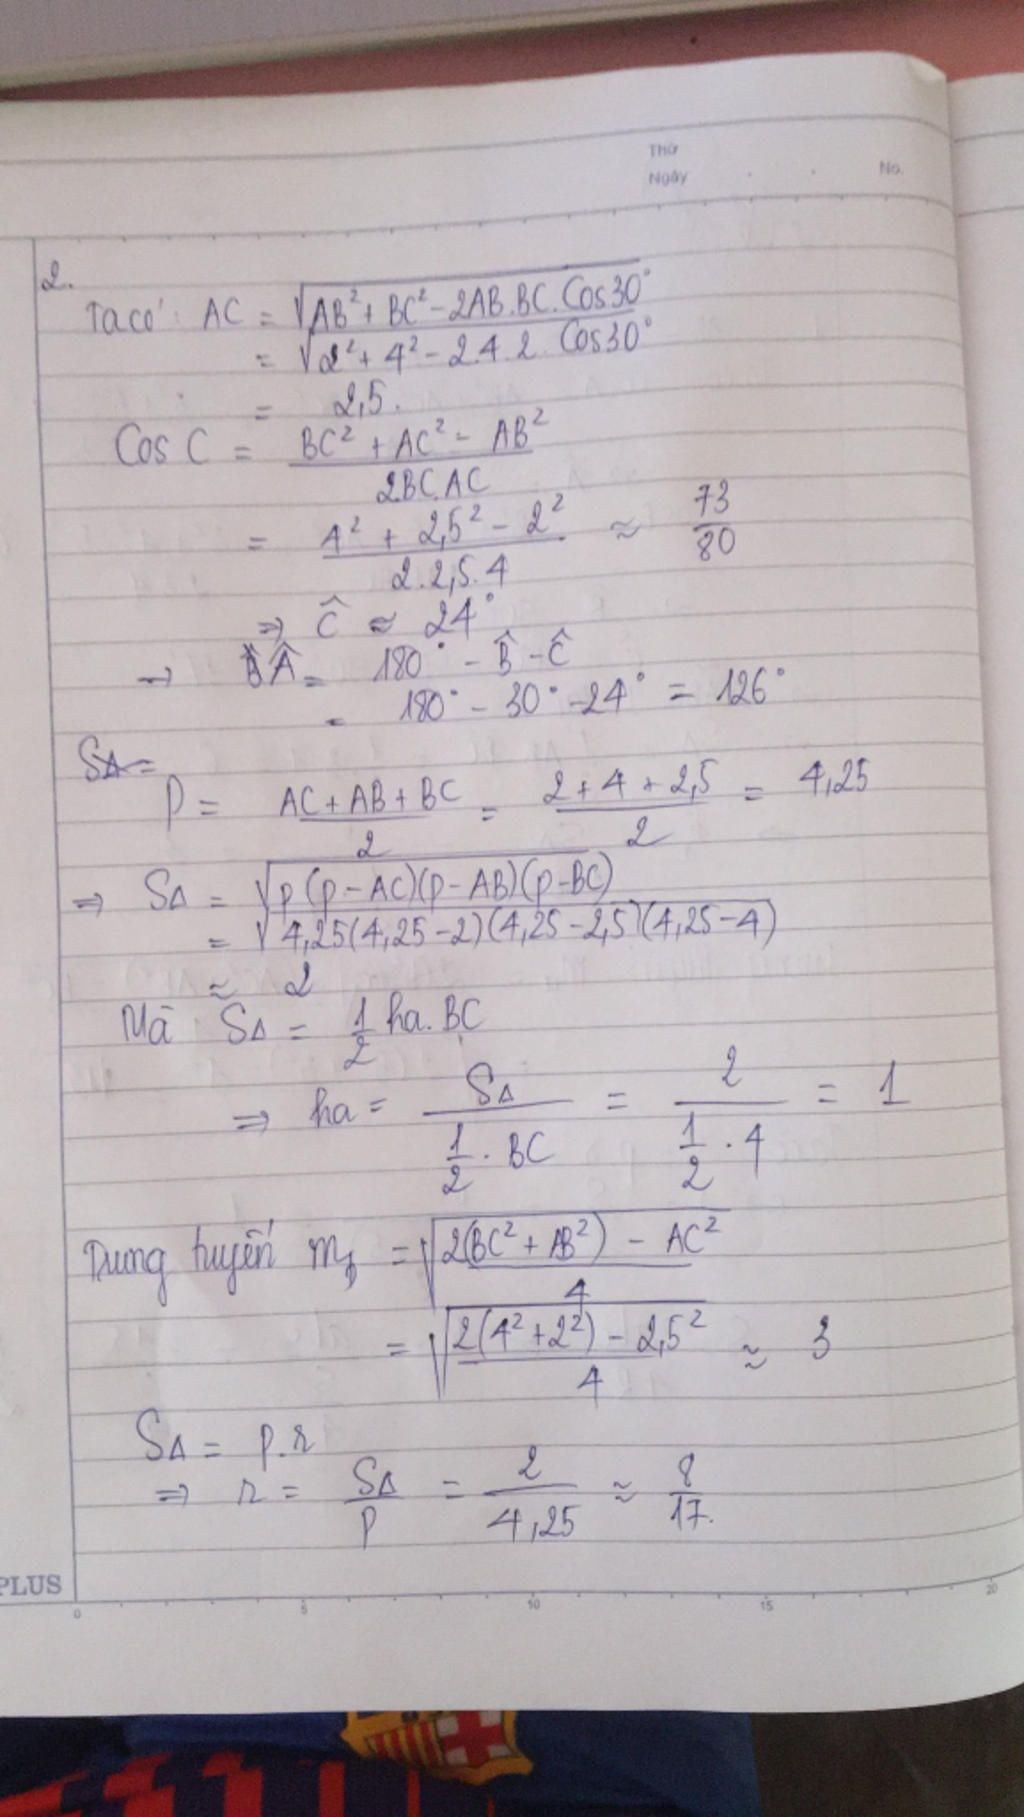 Thứ
Ngày . . No.
2.
Ta có: AC = √(AB² + BC² - 2AB.BC.Cos30°)
= √(2² + 4² - 2.4.2. Cos30°)
= 2,5.
Cos C = (BC² + AC² - AB²)/(2BC.AC)
= (4² + 2,5² - 2²)/(2.2,5.4) ≈ 73/80
⇒ Ĉ ≈ 24°
→ Â = 180° - B̂ - Ĉ
= 180° - 30° - 24° = 126°
S∆ =
P = (AC + AB + BC)/2 = (2 + 4 + 2,5)/2 = 4,25
⇒ S∆ = √(p(p-AC)(p-AB)(p-BC))
= √(4,25(4,25-2)(4,25-2,5)(4,25-4))
≈ 2
Mà S∆ = 1/2 ha.BC
⇒ ha = S∆/(1/2 . BC) = 2/(1/2 . 4) = 1
Trung tuyến m = √((2(BC² + AB²) - AC²)/4)
= √((2(4² + 2²) - 2,5²)/4) ≈ 3
S∆ = p.r
⇒ r = S∆/P = 2/4,25 ≈ 8/17.
PLUS
0 5 10 15 20